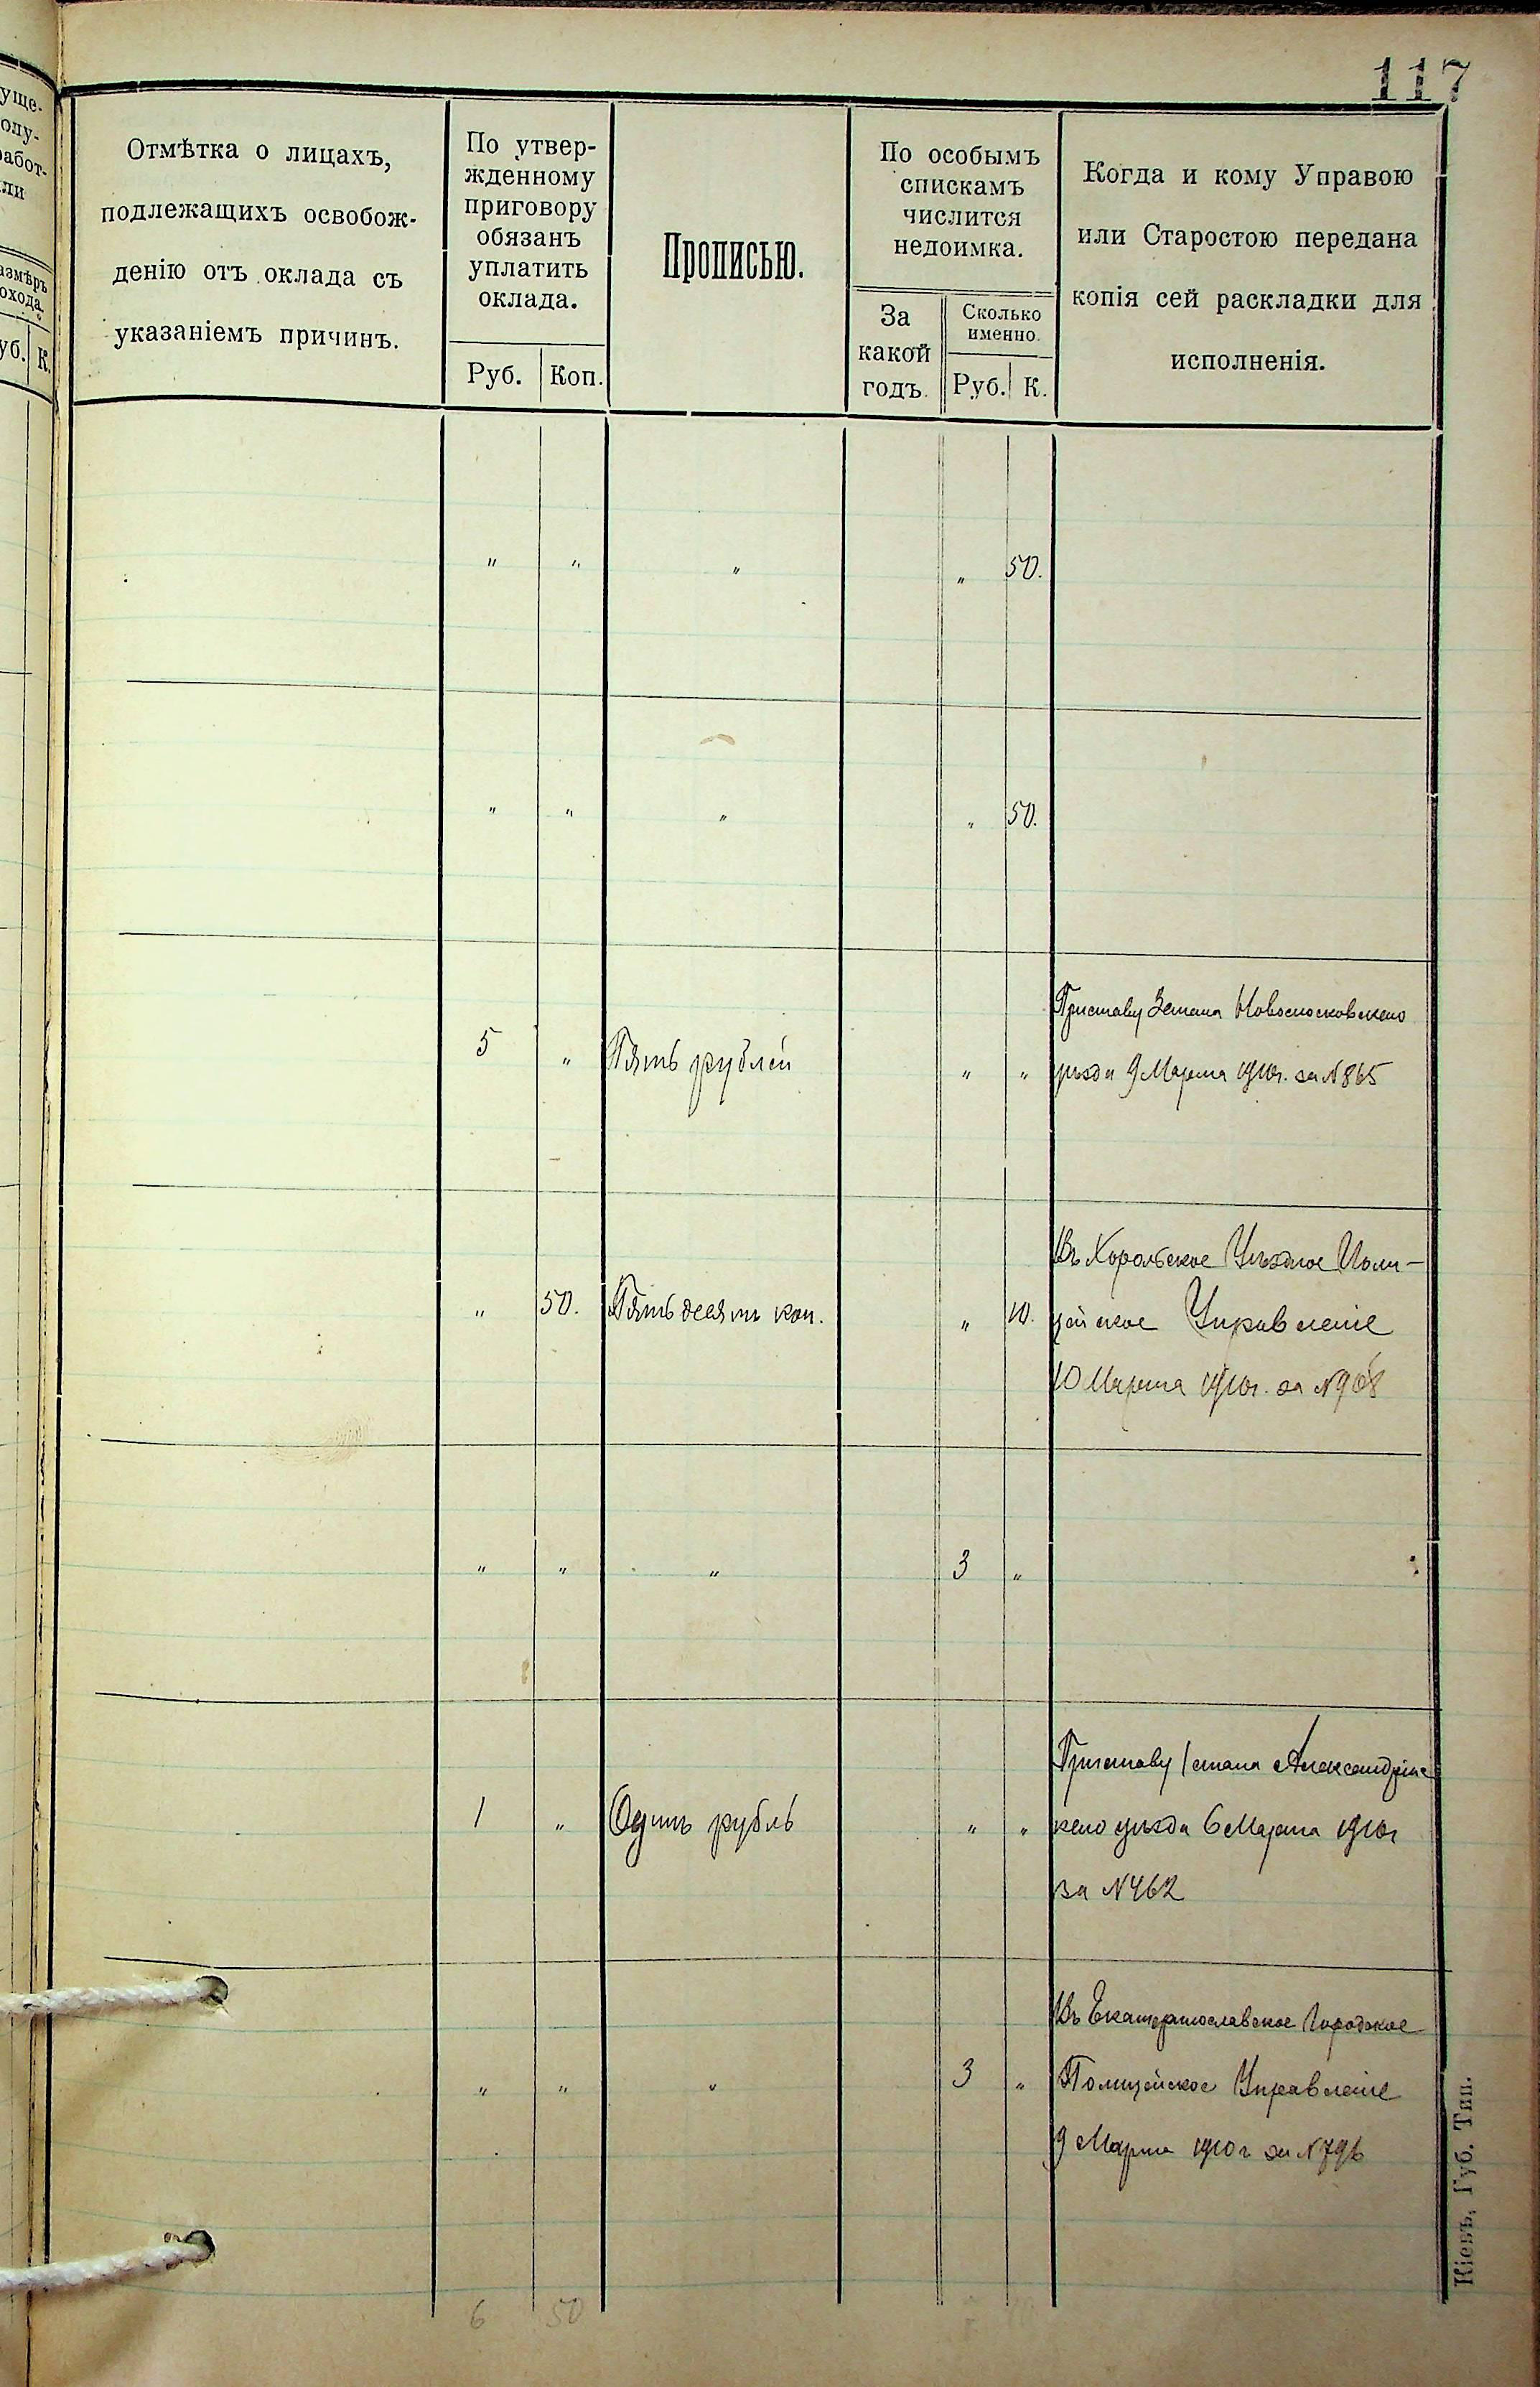 117
уще-
олу-
работ-
ли
азмѣръ
охода.
уб. К.
Отмѣтка о лицахъ,
подлежащихъ освобож-
денію отъ оклада съ
указаніемъ причинъ.
По утвер-
жденному
приговору
обязанъ
уплатить
оклада.
Руб. Коп.
Прописью.
По особымъ
спискамъ
числится
недоимка.
За
какой
годъ.
Сколько
именно.
Руб. К.
Когда и кому Управою
или Старостою передана
копія сей раскладки для
исполненія.
" " " " 50.
" " " " 50.
Приставу 3 стана Новомосковскаго
5 " Пять рублей " " уѣзда 9 Марта 1910г. за №865
Въ Хорольское Уѣздное Поли-
" 50. Пятьдесятъ коп. " 10. цейское Управленіе
10 Марта 1910г. за №908
" " " 3 "
Приставу 1 стана Александрійс
1 " Одинъ рубль " " каго уѣзда 6 Марта 1910г
за №462
Въ Екатеринославское Городское
" " " 3 " Полицейское Управленіе
9 Марта 1910г за №796
6 50
Кіевъ, Губ. Тип.